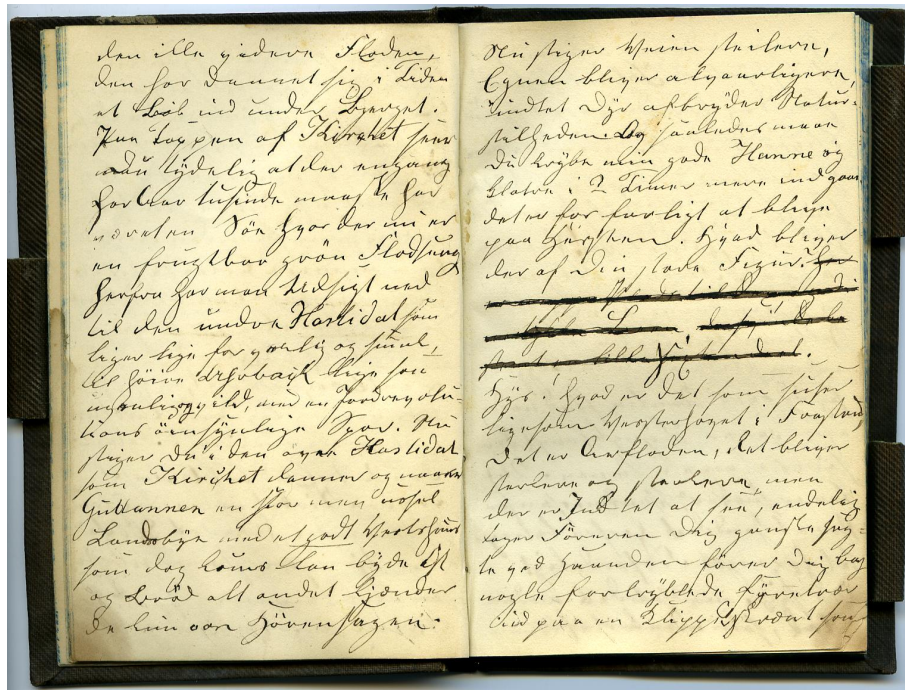 den ille videre Floden,
den har dannet sig i Tiden
et Løb ind under Bjerget.
Paa Toppen af Kirchet seer
du tydelig at der engang
for Aar tusinde maaske har
været en Søe hvor der nu er
en frugtbar grøn Flodseng
herfra har man Udsigt ned
til den undre Haslidal som
liger lige for venlig og smuk,
til høire Urbachs lige saa
uvenlig og vild, med en Jordrevolu-
tions øinsynlige Spor. Nu
stiger Du i den øvre Haslidal
som Kirchet danner og naaer
Guttannen en stor men ussel
Landsbye med et godt Vertshuus
som dog kuns kan byde Ost
og Brød alt andet kjender
de kun over Hørensagen.
Nu stiger Veien steilere,
Egnen bliver alvorligere,
Intet Dyr afbryder Natur-
stilheden. Og saaledes maae
Du krybe min gode Hanne og
klatre i 2 Timer mere ind gaae
det er for farligt at blive
paa Hesten. Hvad bliver
der af Din store Figur?
Hys! hvad er det som suser
ligesom Vesterhavet i Frastand,
Det er Aarfloden, Det bliver
sterkere og sterkere, men
der er Intet at see, endelig
tager Føreren Dig ganske sag-
te ved Haanden fører Dig bag
nogle forkrøblede Fyretræer
ud paa en Klippeskrænt som